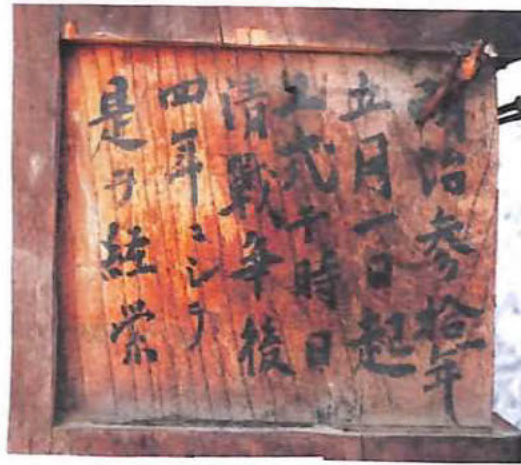 明治参拾年
五月一日起
工式于時日
清戰争後
四年ニシテ
是ヲ経営